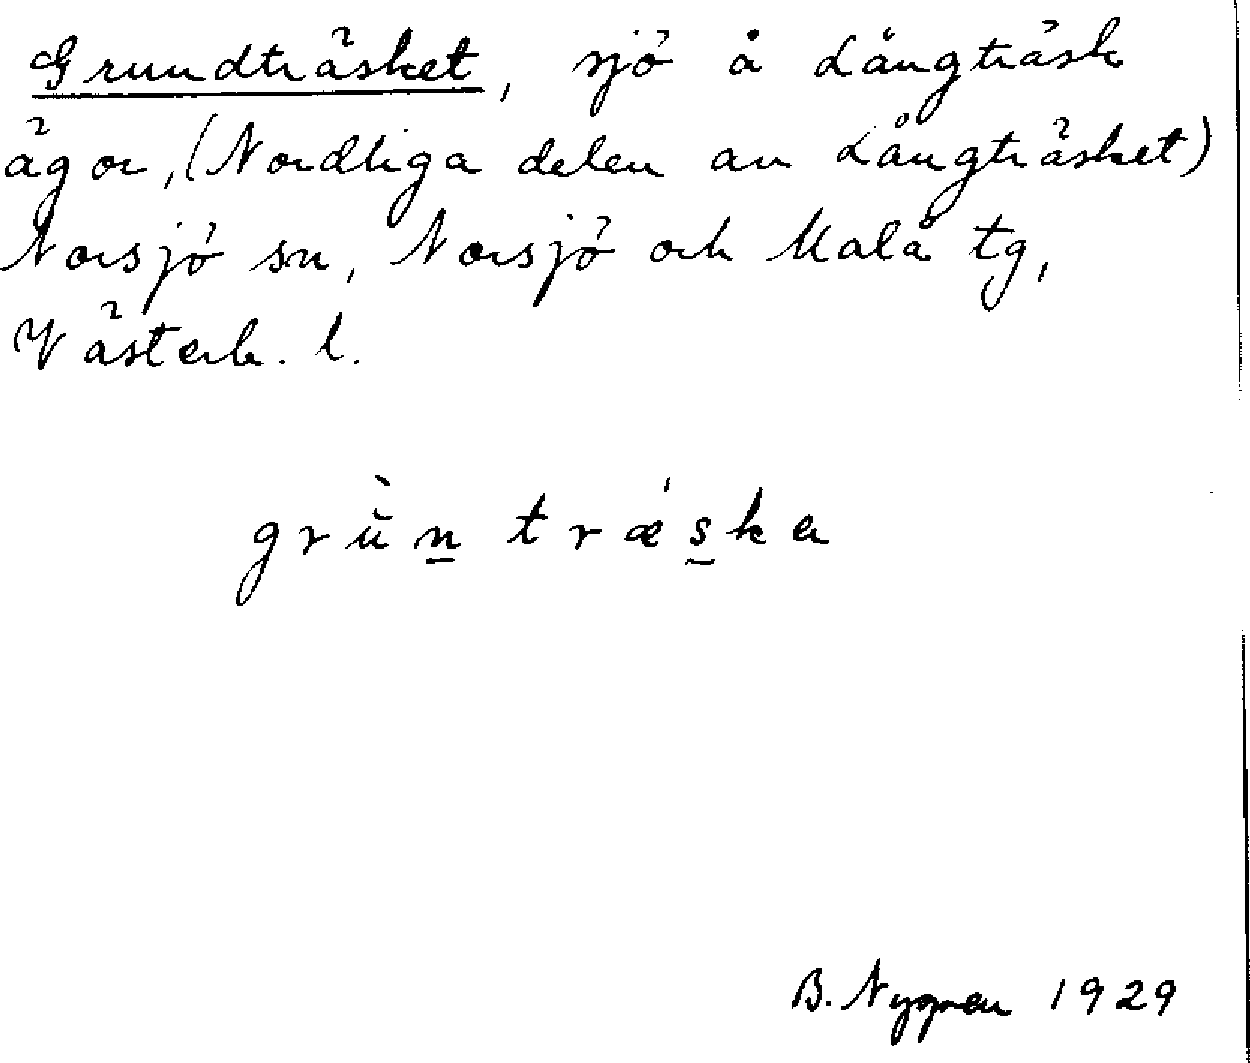 Grundträsket, sjö å Långträsk
ägor, (Nordliga delen av Långträsket)
Norsjö sn, Norsjö och Malå tg,
Västerb. l.
grùn træ´ska
B. Nygren 1929